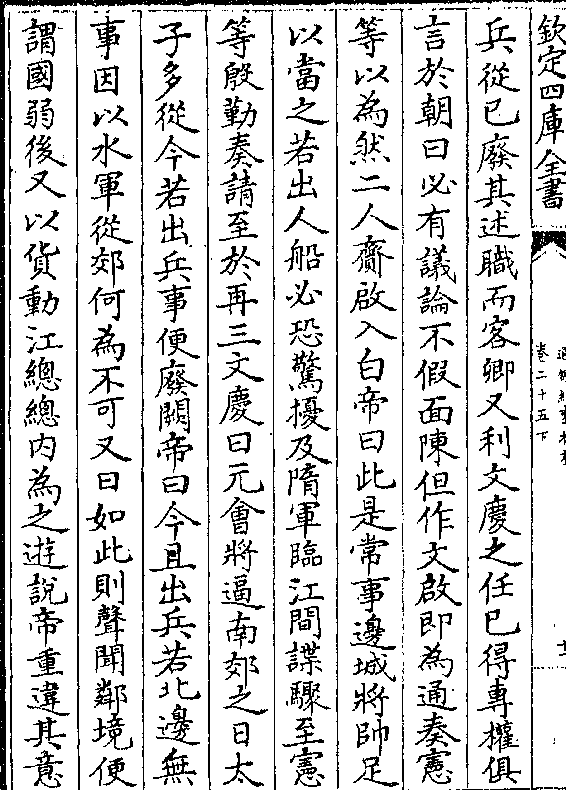 欽定四庫全書
卷二十五下
兵從已廢其述職而客卿又利文慶之任已得專權俱
言於朝曰必有議論不假面陳但作文啟即為通奏憲
等以為然二人齎啟入白帝曰此是常事邊城將帥足
以當之若出人船必恐驚擾及隋軍臨江間諜驟至憲
等殷勤奏請至於再三文慶曰元會將逼南郊之日太
子多從今若出兵事便廢闕帝曰今且出兵若北邊無
事因以水軍從郊何為不可又曰如此則聲聞鄰境便
謂國弱後又以貨動江總總內為之遊說帝重違其意